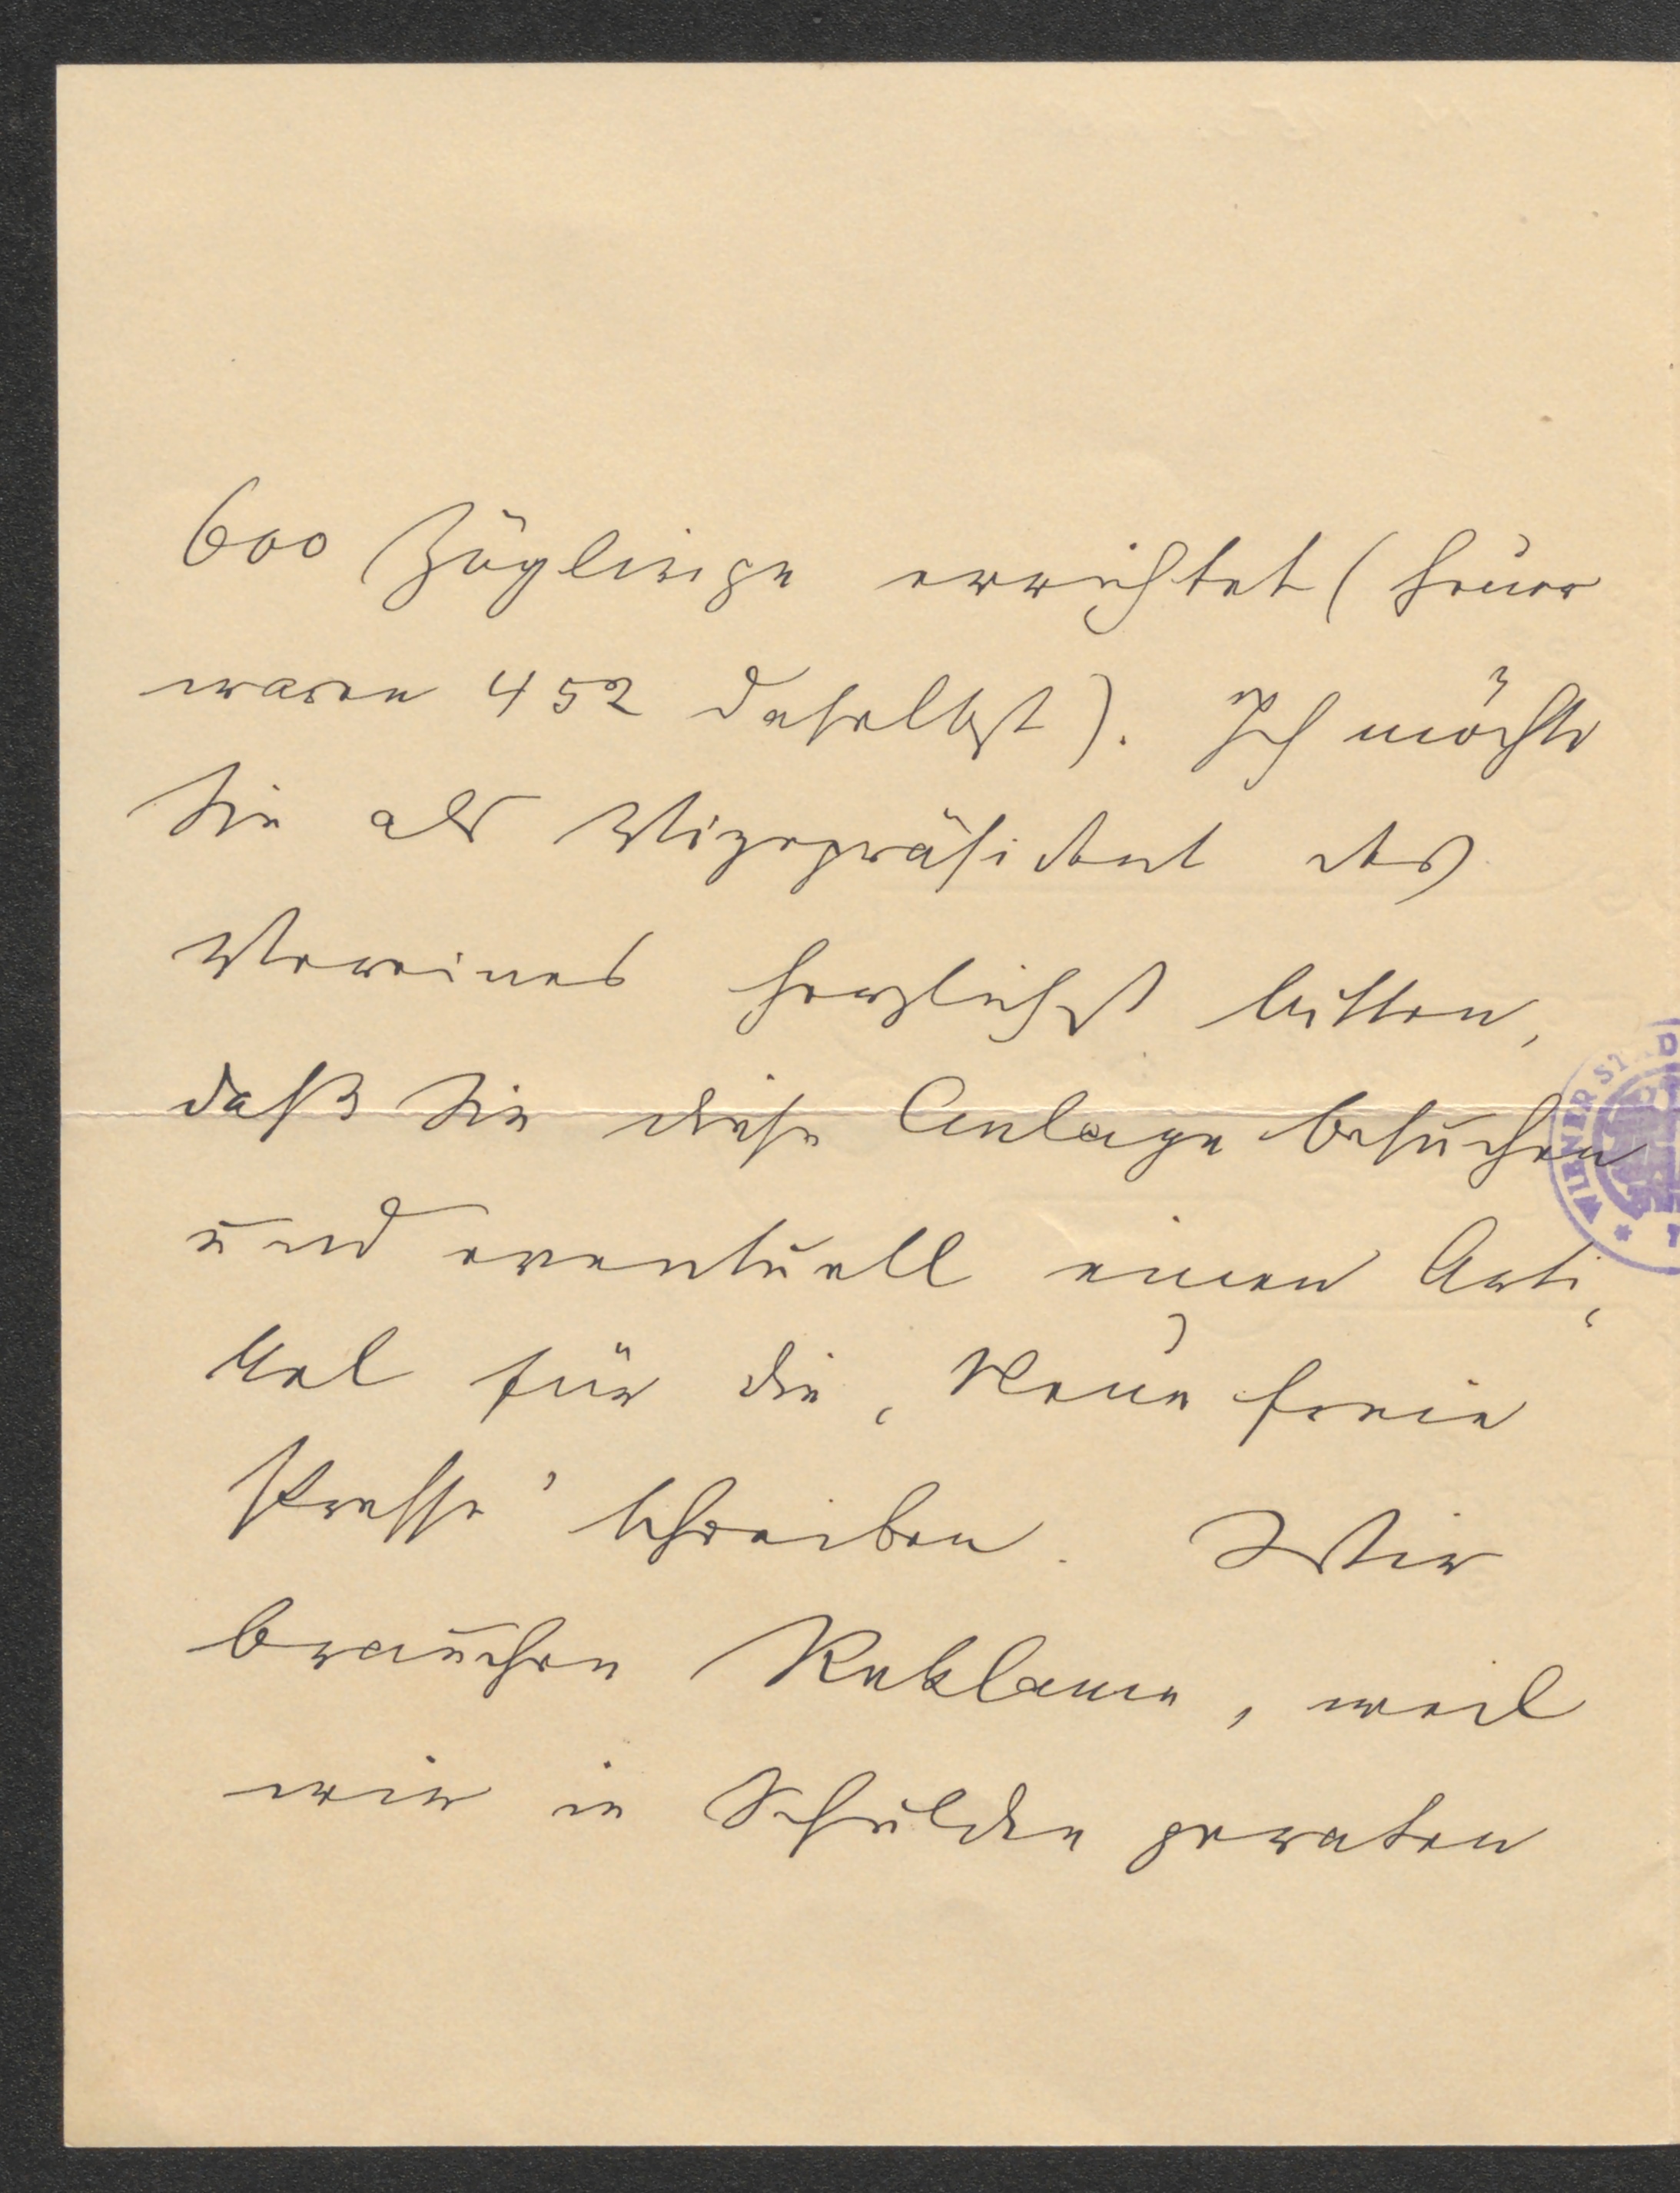 600 Zöglinge errichtet (heuer
waren 452 daselbst). Ich möchte
Sie als Vizepräsident des
Vereines herzlichst bitten,
daß Sie diese Anlage besuchen
und eventuell einen Arti-
kel für die „Neue freie
Presse“ schreiben. Wir
brauchen Reklame, weil
wir in Schulden geraten
WIENER ST